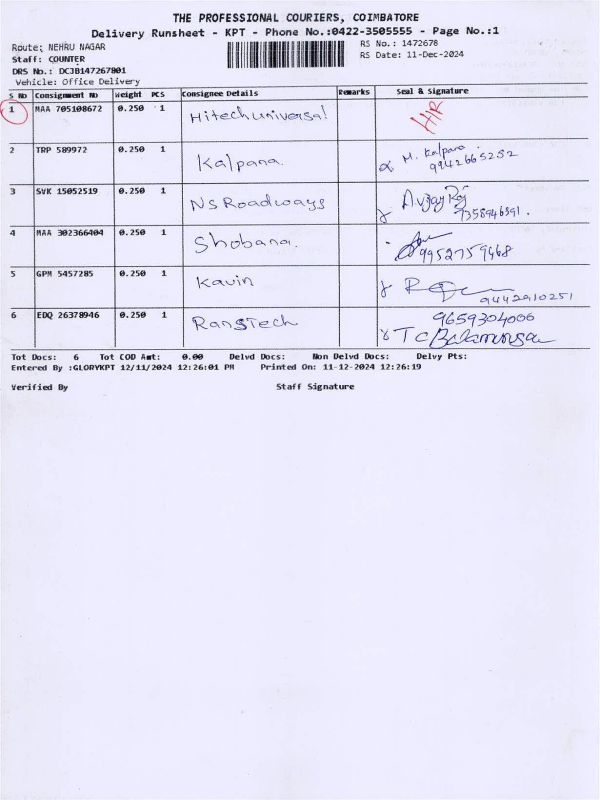 THE PROFESSIONAL COURIERS, COIMBATORE
Delivery Runsheet - KPT - Phone No.:0422-3505555 - Page No.:1
Route: NEHRU NAGAR
RS No.: 1472678
Staff: COUNTER
RS Date: 11-Dec-2024
DRS No.: DCJB147267801
Vehicle: Office Delivery
S No Consignment No Weight PCS Consignee Details Remarks Seal & Signature
1 MAA 705108672 0.250 1 Hitech universal H/R
2 TRP 589972 0.250 1 Kalpana. M. Kalpana
9942665252
3 SVK 15052519 0.250 1 NS Roadways A vijay Raj
7358946391.
4 MAA 302366404 0.250 1 Shobana.
9952759468
5 GPM 5457285 0.250 1 Kavin
9442910251
6 EDQ 26378946 0.250 1 RansTech 9659304006
Tot Docs: 6 Tot COD Amt: 0.00 Delvd Docs: Non Delvd Docs: Delvy Pts:
Entered By :GLORYKPT 12/11/2024 12:26:01 PM Printed On: 11-12-2024 12:26:19
Verified By Staff Signature